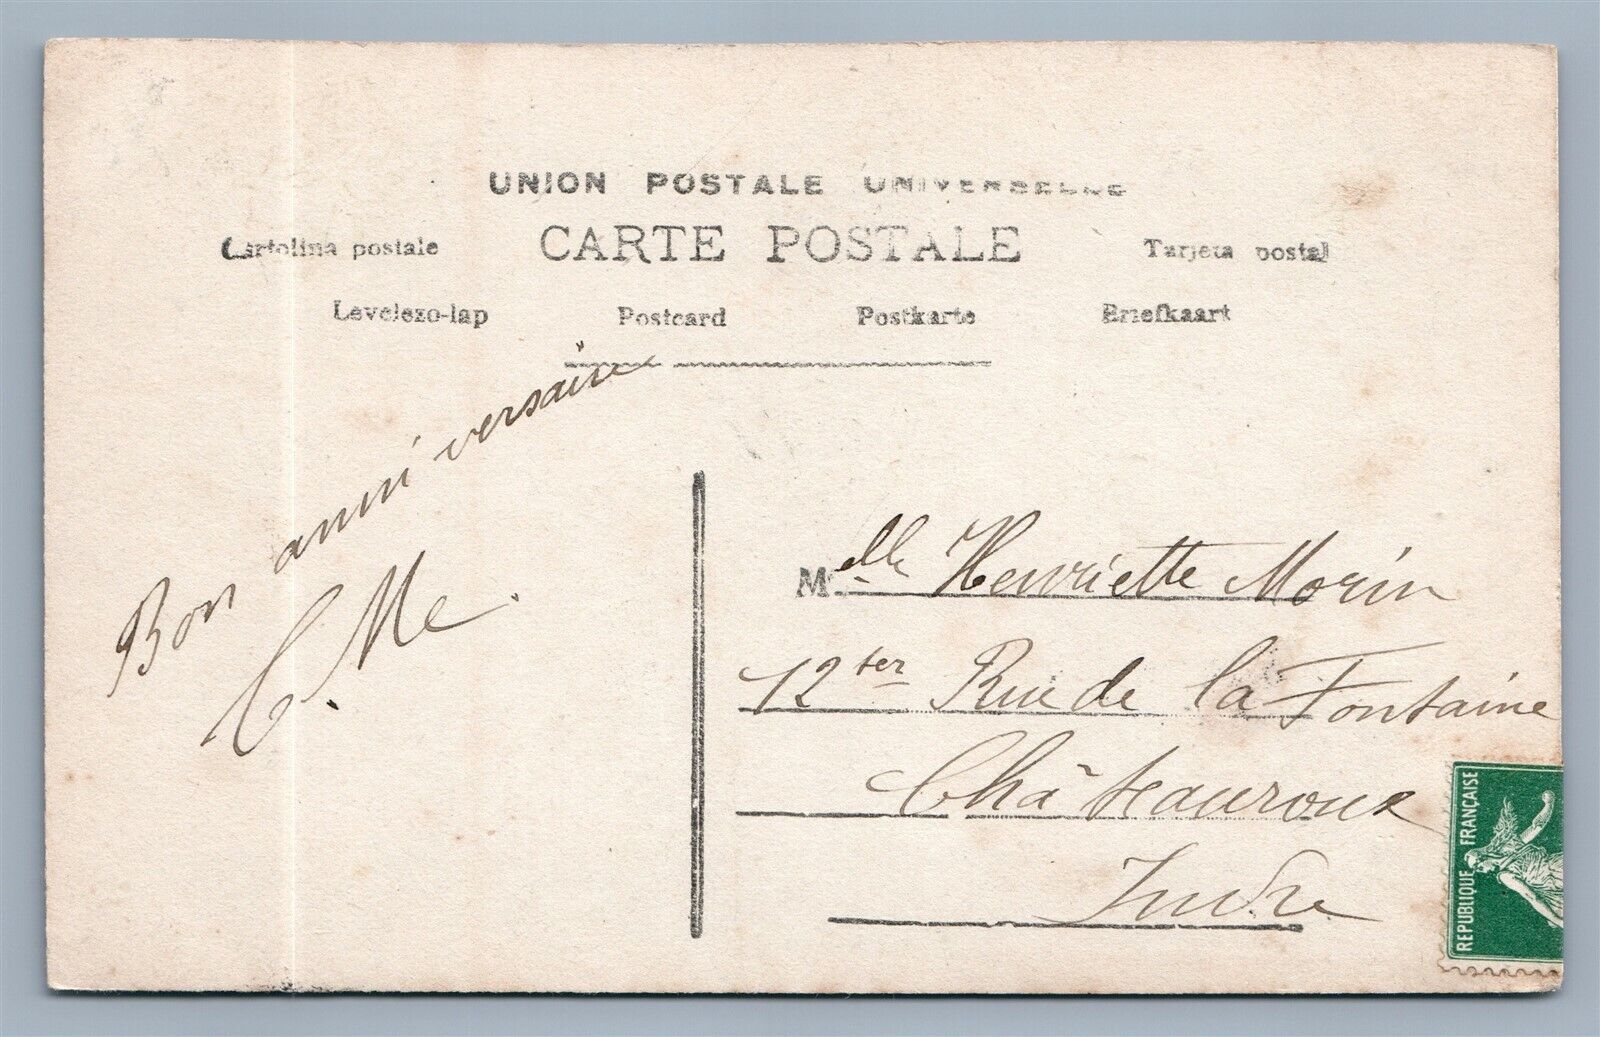 UNION POSTALE UNIVERSELLE
CARTE POSTALE
Cartolina postale
Tarjeta postal
Levelezo-lap Postcard Postkarte Briefkaart
Bon anniversaire
C. Me.
Melle Henriette Morin
12ter Rue de la Fontaine
Châteauroux
Indre
REPUBLIQUE FRANÇAISE